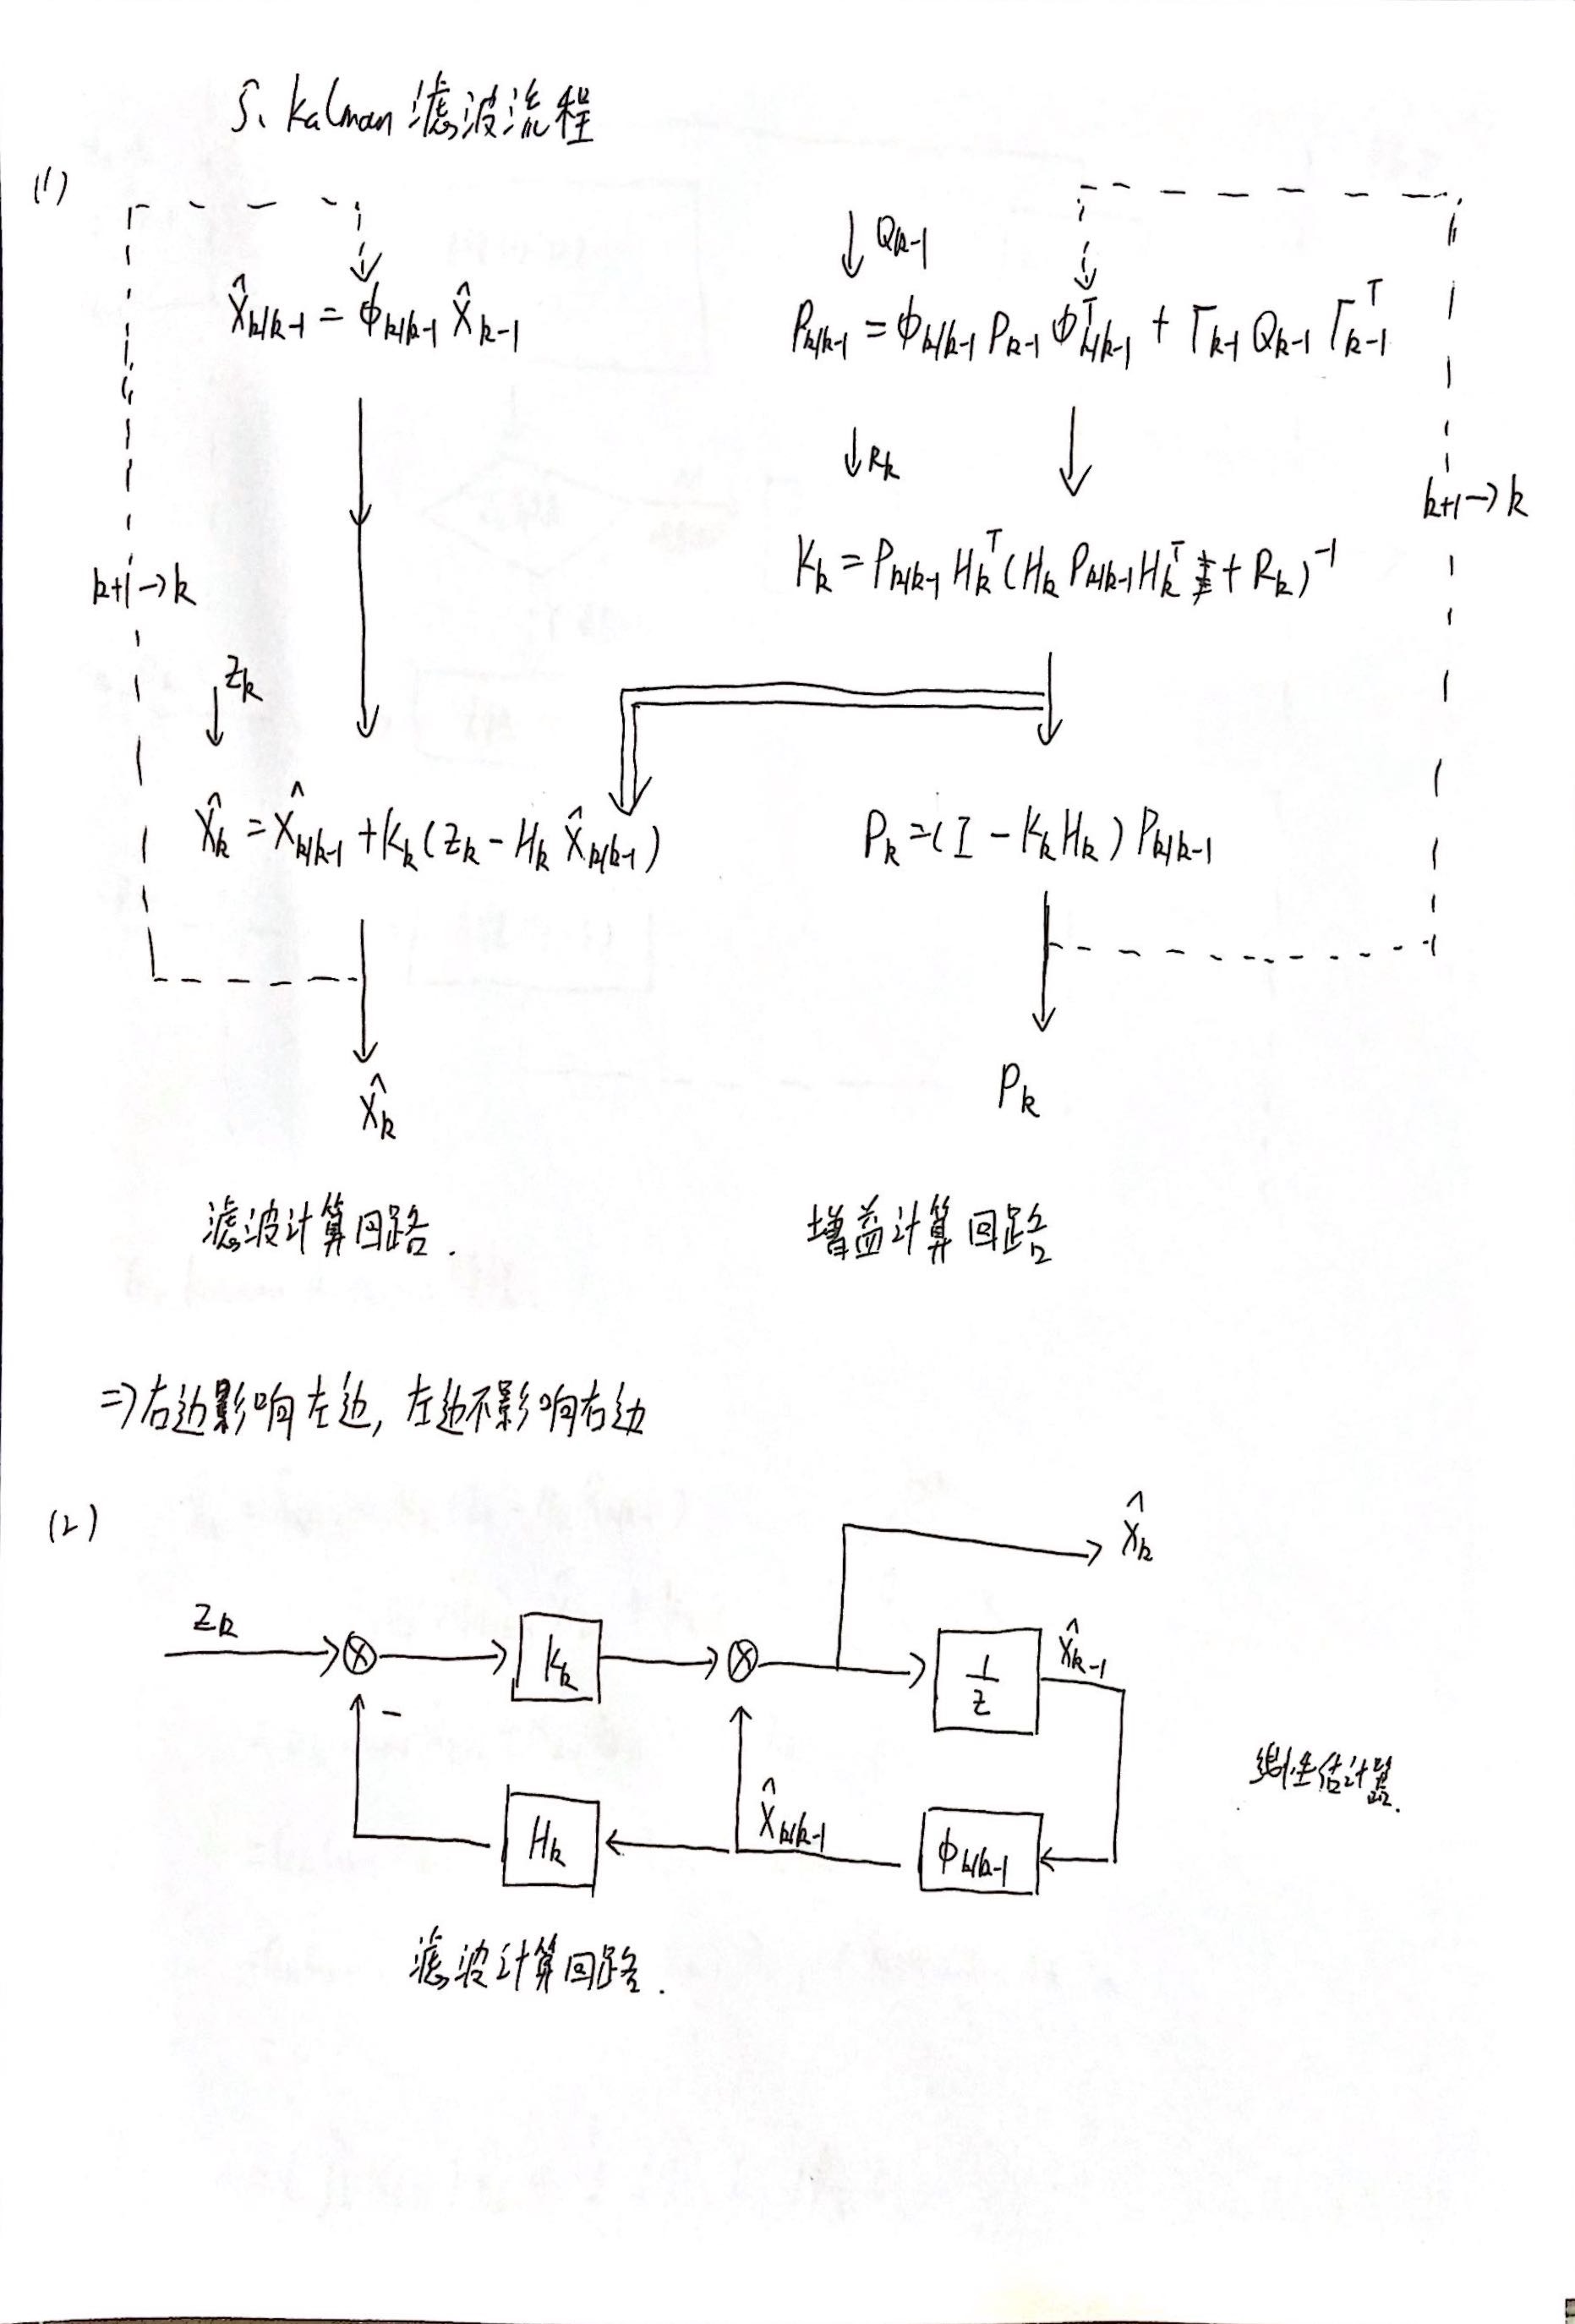 5、Kalman 滤波流程
(1)
Q_{k-1}
X̂_{k/k-1} = ϕ_{k/k-1} X̂_{k-1}
P_{k/k-1} = ϕ_{k/k-1} P_{k-1} ϕ^T_{k/k-1} + Γ_{k-1} Q_{k-1} Γ^T_{k-1}
R_k
k+1→k
K_k = P_{k/k-1} H_k^T (H_k P_{k/k-1} H_k^T + R_k)^{-1}
k+1→k
Z_k
X̂_k = X̂_{k/k-1} + K_k (Z_k - H_k X̂_{k/k-1})
P_k = (I - K_k H_k) P_{k/k-1}
X̂_k
P_k
滤波计算回路.
增益计算回路
⇒右边影响左边, 左边不影响右边
(2)
X̂_k
Z_k
K_k
1/z
X̂_{k-1}
-
H_k
X̂_{k/k-1}
ϕ_{k/k-1}
线性估计器.
滤波计算回路.